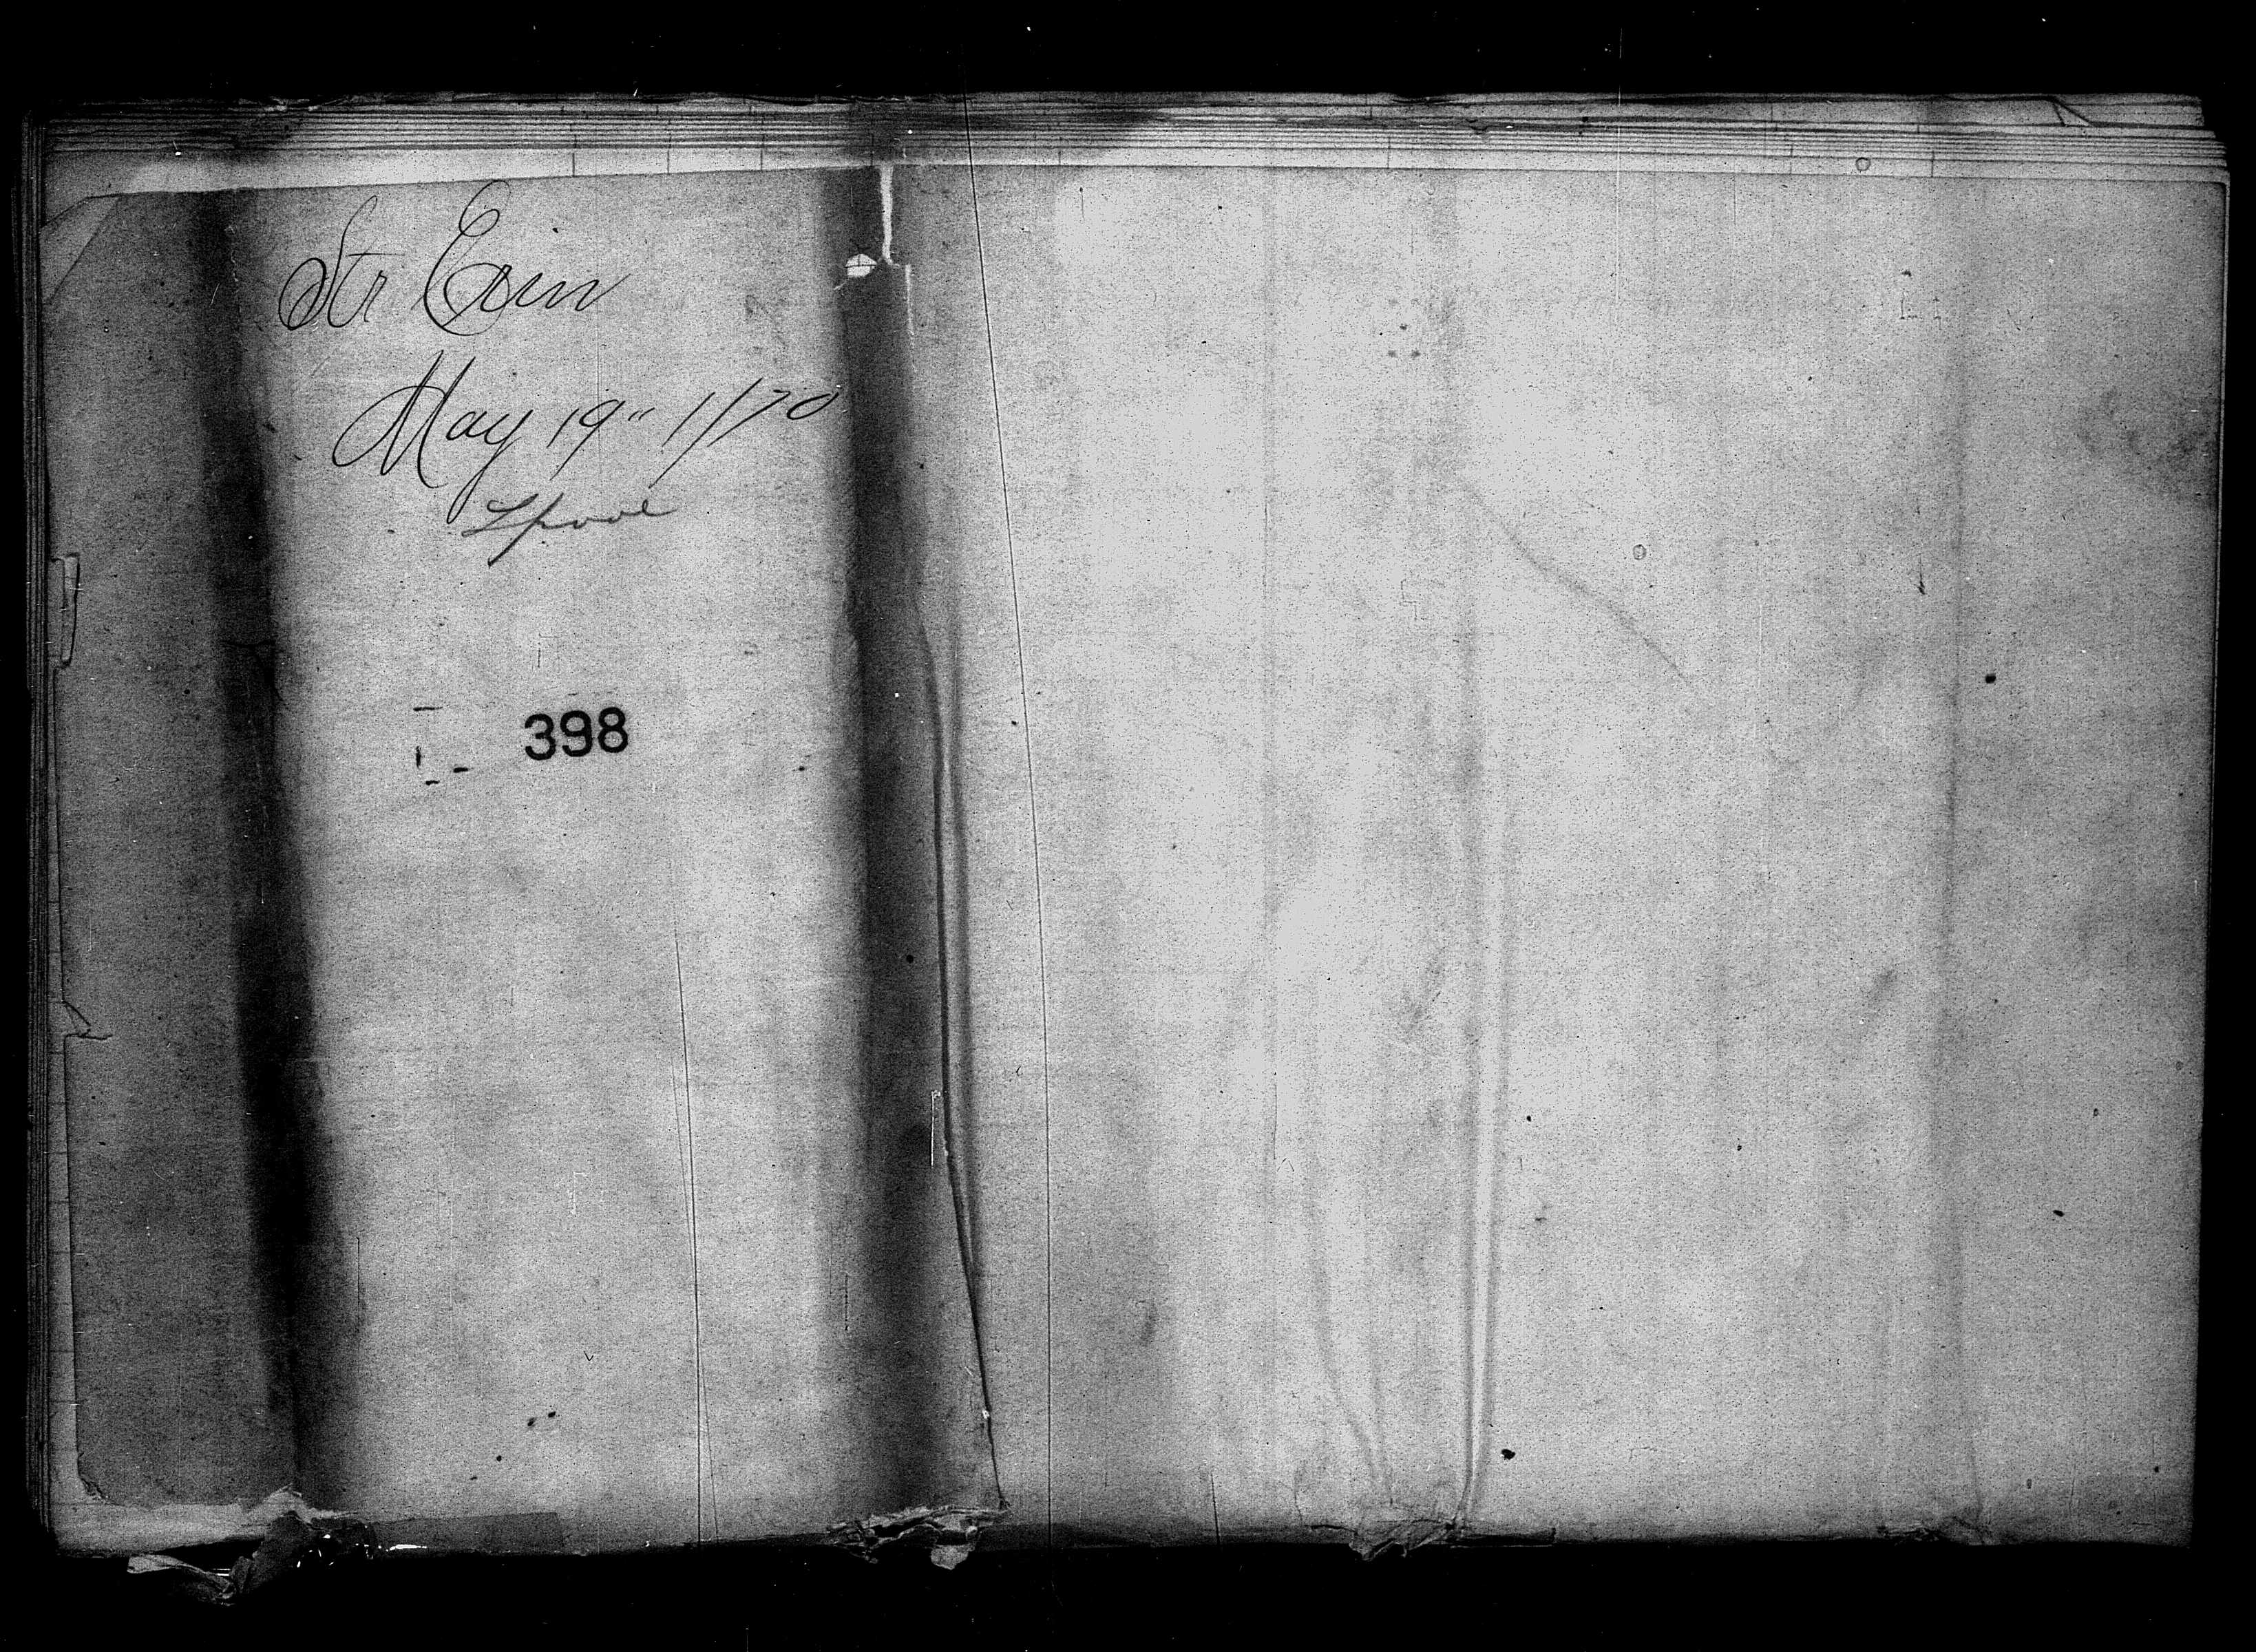 Str Erin
May 19" 1870
Lpool
398